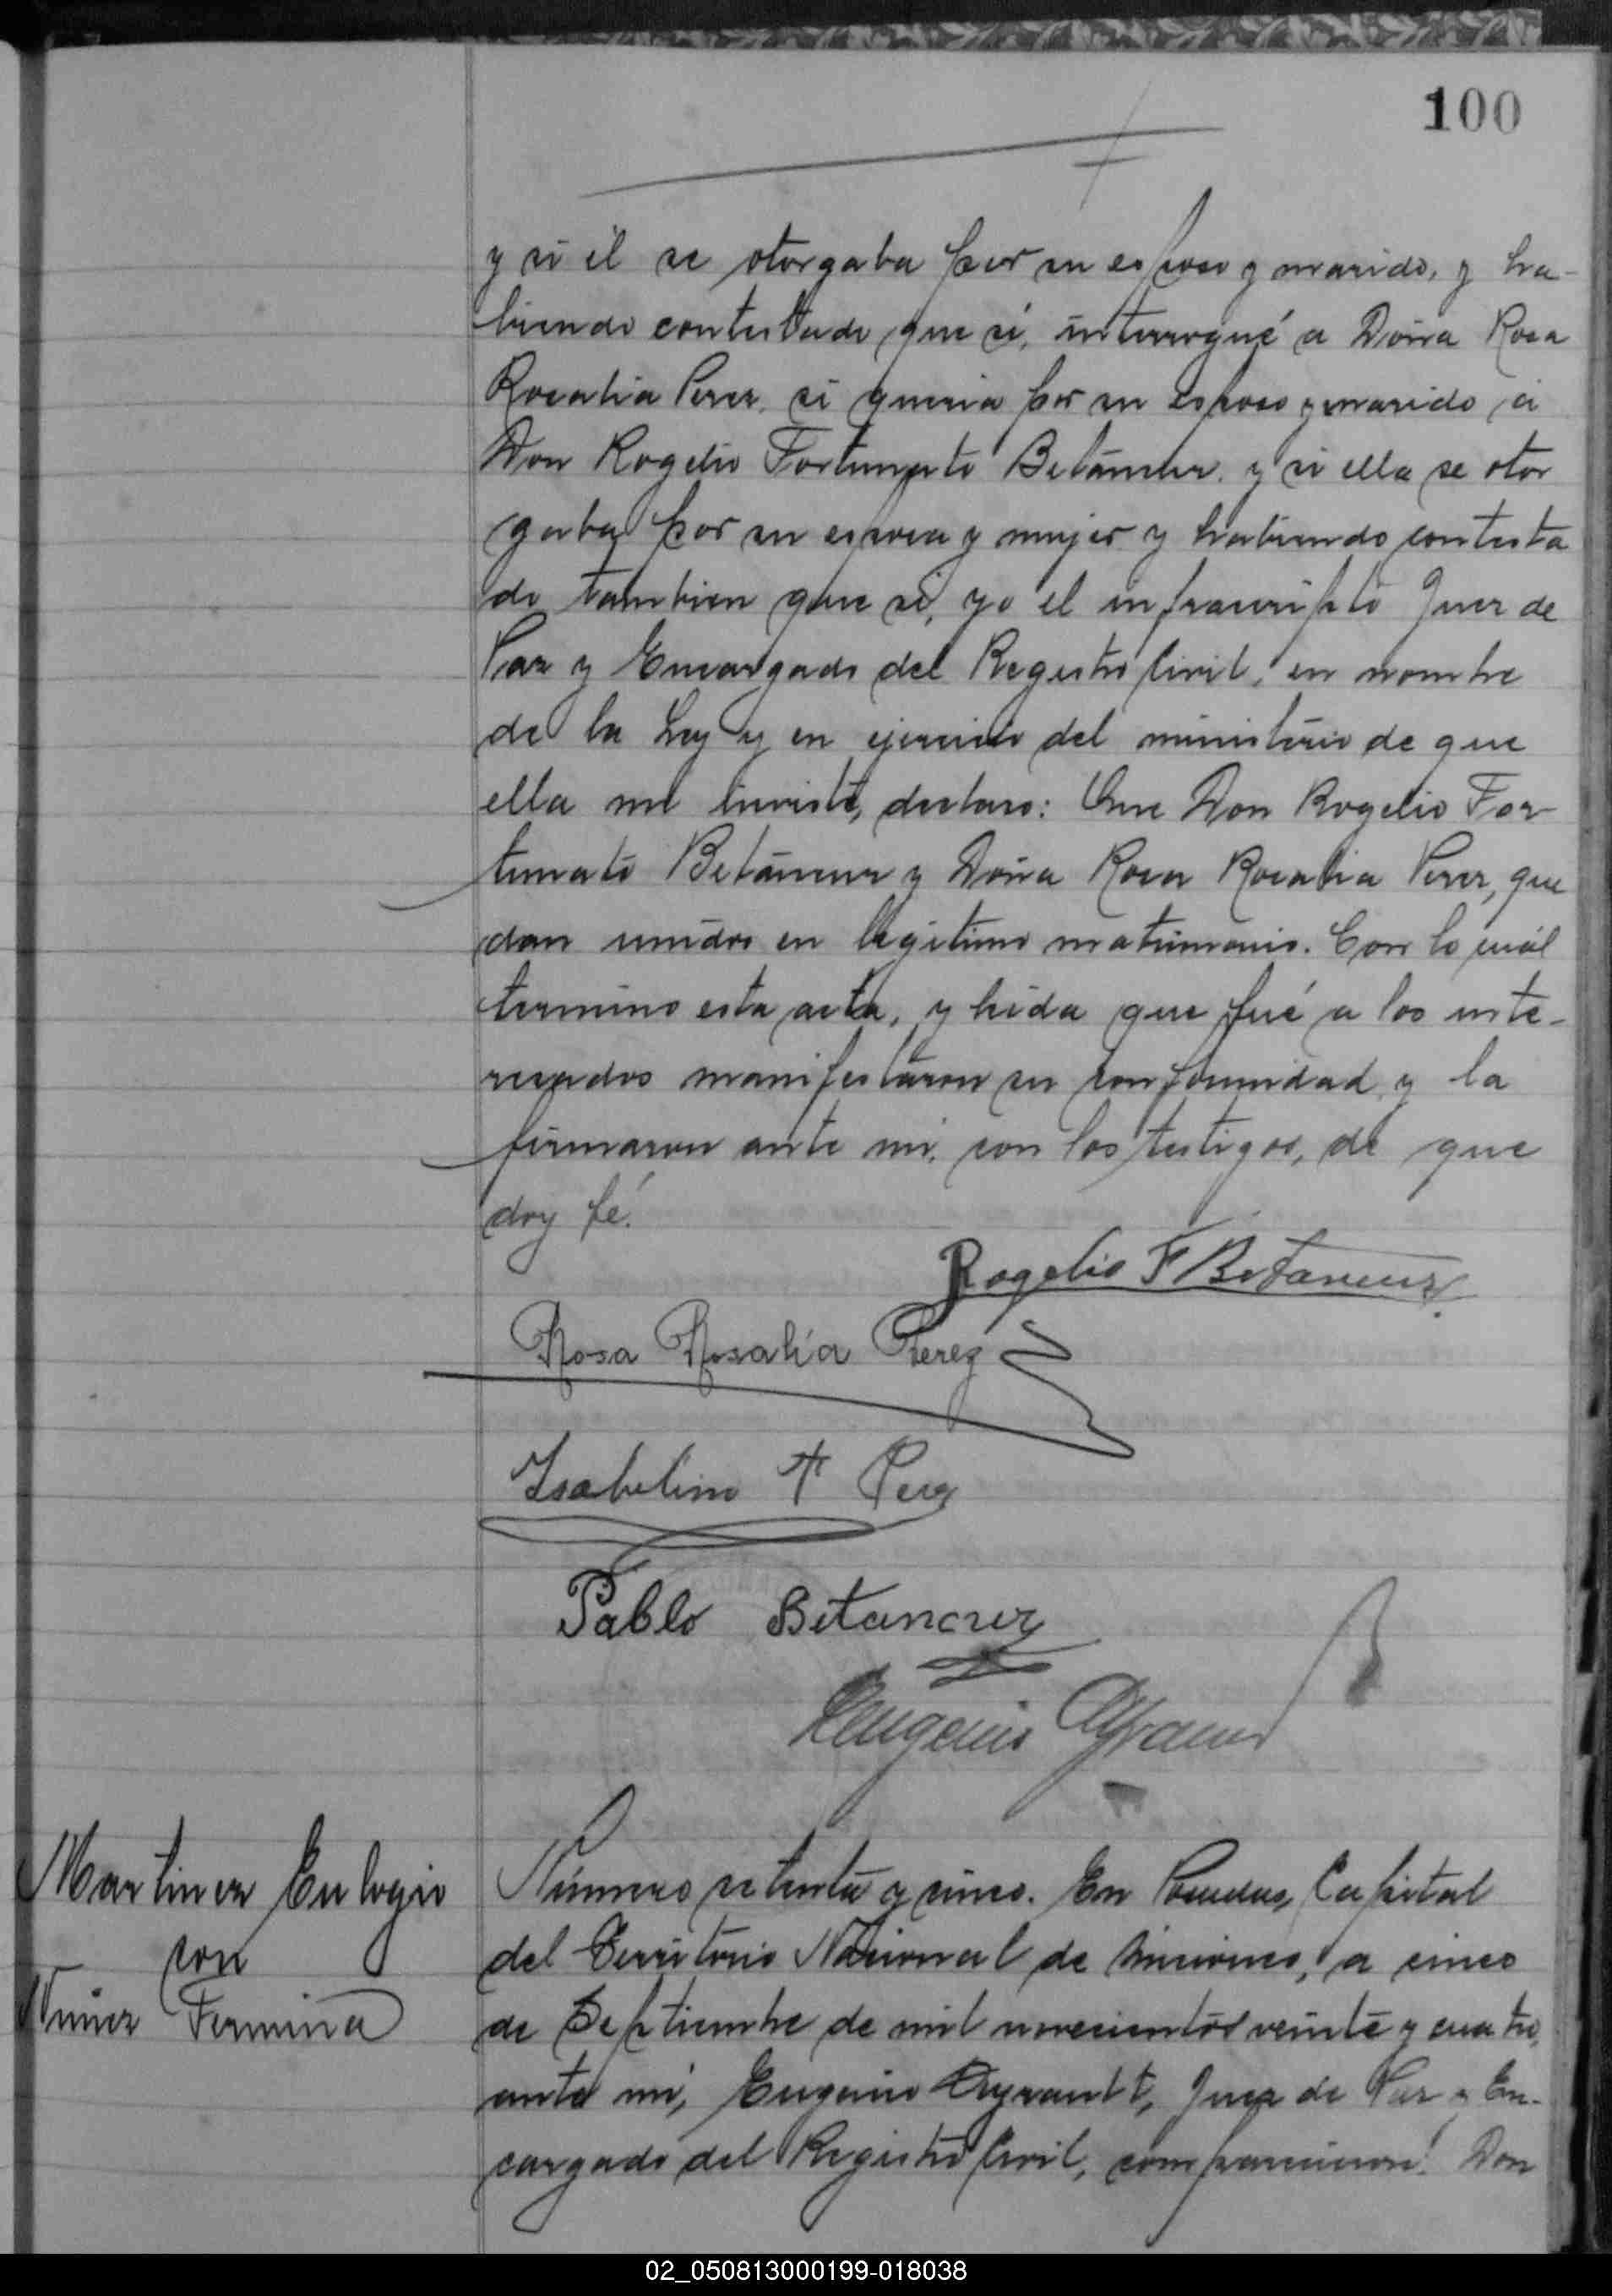 100
y si él se otorgaba por su esposo y marido, y ha-
biendo contestado que sí, interrogué a Doña Rosa
Rosalia Perez, si queria por su esposo y marido a
Don Rogelio Fortunato Betáncur, y si ella se otor
gaba por su esposa y mujer y habiendo contesta
do tambien que si, yo el infrascripto Juez de
Paz y Encargado del Registro Civil, en nombre
de la Ley y en ejercicio del ministerio de que
ella me inviste, declaro: Que Don Rogelio For
tunato Betáncur y Doña Rosa Rosalia Perez, que
dan unidos en legitimo matrimonio. Con lo cuál
termino esta acta, y leida que fué a los inte-
resados manifestaron su conformidad y la
firmaron ante mi, con los testigos, de que
doy fé.
Rogelio F Betancur
Rosa Rosalía Perez
Isabelino Perez
Pablo Betancur
Eugenio Ayrault
Martinez Eulogio
con
Nuñez Fermina
Número setenta y cinco. En Posadas, Capital
del Territorio Nacional de Misiones, a cinco
de Septiembre de mil novecientos veinte y cuatro,
ante mi, Eugenio Ayrault, Juez de Paz y En-
cargado del Registro Civil, comparecieron: Don
02_050813000199-018038